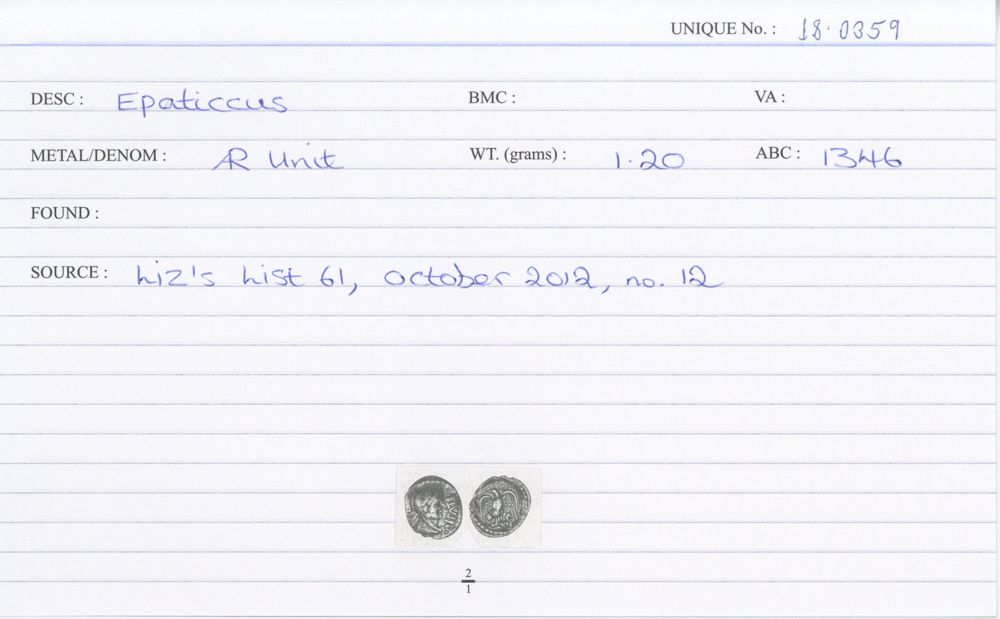 UNIQUE No. : 18.0359
DESC : Epaticcus BMC : VA :
METAL/DENOM : AR Unit WT. (grams) : 1.20 ABC : 1346
FOUND :
SOURCE : Liz's List 61, October 2012, no. 12
2
1